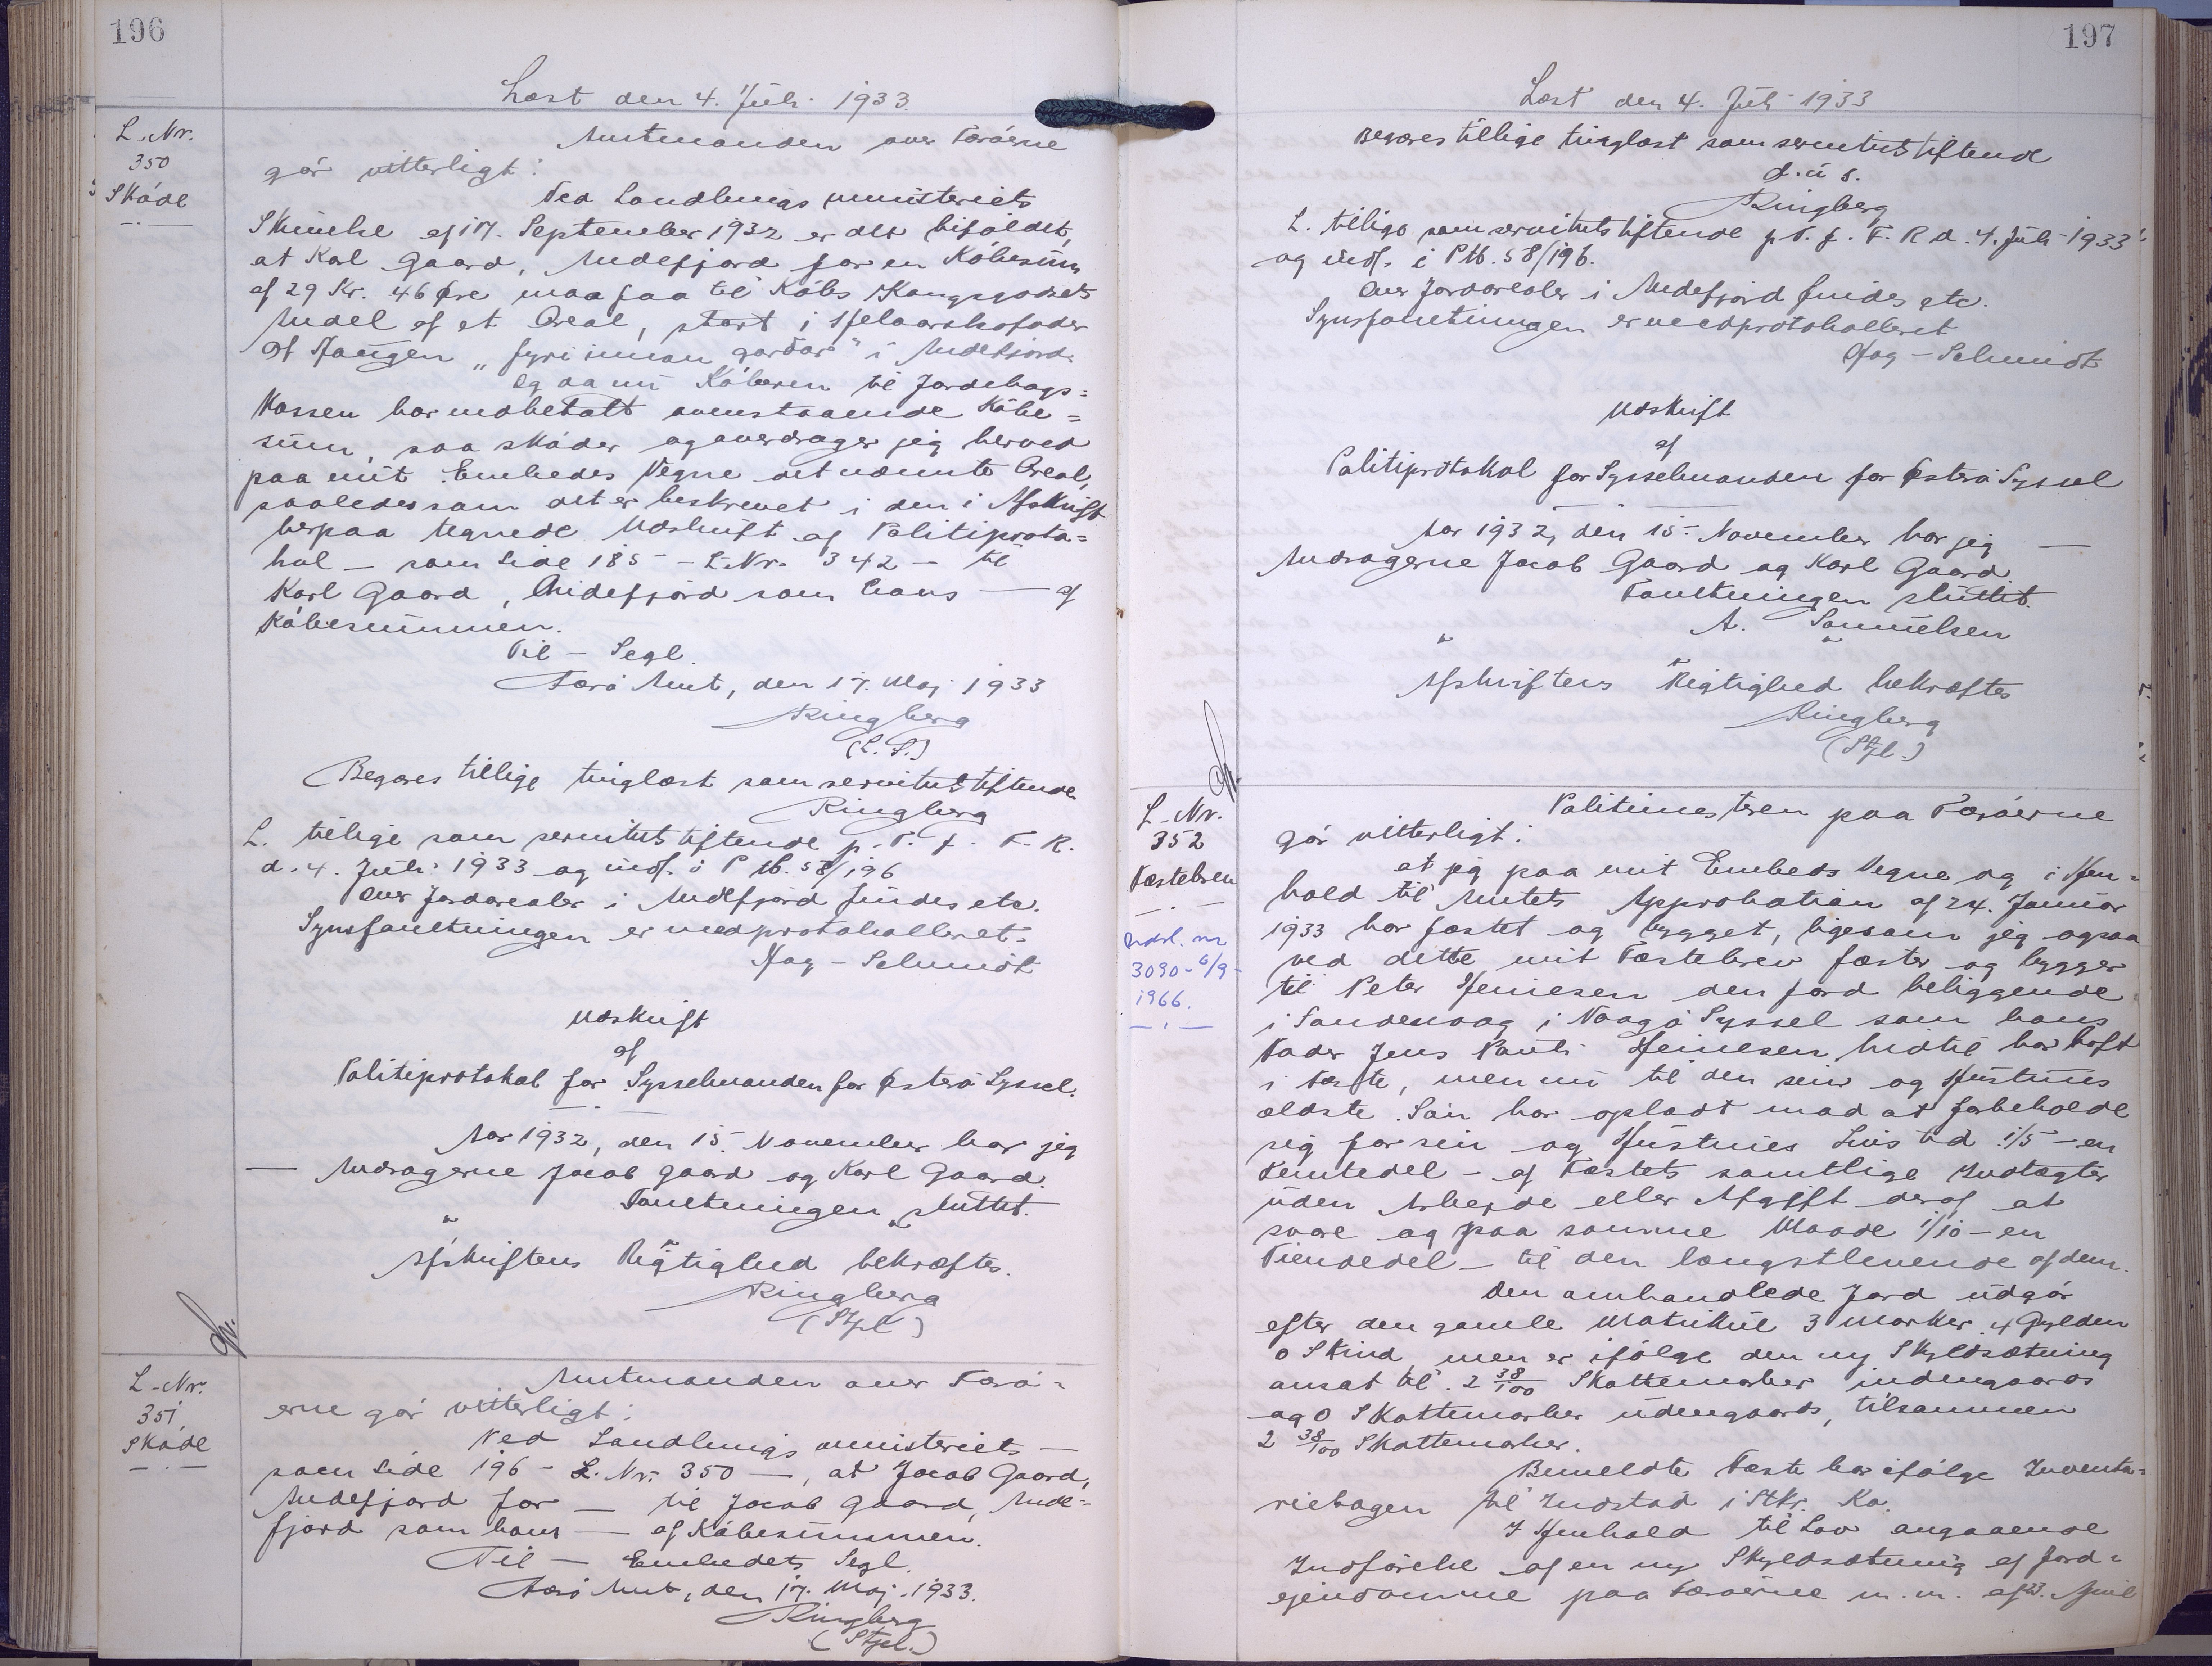 196
Læst den 4. Juli 1933.
L. Nr.
350
Skøde
Amtmanden over Færøerne
gør vitterligt:
Ved Landbrugsministeriets
Skrivelse af 17. September 1932 er det bifaldet,
at Karl Gaard, Andefjord for en Købesum
af 29 Kr. 46 Øre maa faa til Købs Kongsgodsets
Andel af et Areal, stort i
af Haugen „fyri innan gardar" i Andefjord.
Og da nu Køberen til Jordebogs=
kassen har indbetalt ovenstaaende Købe=
sum, saa skøder og overdrager jeg herved
paa mit Embedes Vegne det nævnte Areal,
saaledes som det er beskrevet i den i Afskrift
herpaa tegnede Udskrift af Politiproto=
kol – som Side 185 – L. Nr. 342 – til
Karl Gaard, Andefjord som hans — af
Købesummen.
Til – Segl.
Færø Amt, den 17. Maj 1933
Ringberg
(L. S.)
Begæres tillige tinglæst som servitutstiftende
Ringberg
L. tillige som servitutstiftende p. T. f. F. R.
d. 4. Juli 1933 og indf. i P M. 58/196
Over Jordarealer i Andefjord findes etc.
Synsforretningen er medprotokolleret.
Hag – Schmidt
Udskrift
af
Politiprotokol for Sysselmanden for Østerø Syssel.
Aar 1932, den 15. November har jeg
— Andragerne Jacob Gaard og Karl Gaard.
Forretningen sluttet.
" " "
Afskriftens Rigtighed bekræftes.
Ringberg
(Stpl.)
L. Nr.
351
Skøde
Amtmanden over Færø=
erne gør vitterligt:
Ved Landbrugsministeriets —
som Side 196 – L. Nr. 350 —, at Jacob Gaard,
Andefjord for — til Jacob Gaard, Ande=
fjord som hans — af Købesummen.
Til — Embedets Segl.
Færø Amt, den 17. Maj 1933.
Ringberg
(Stpl.)
197
Læst den 4. Juli 1933
Begæres tillige tinglæst som servitutstiftende
d. u. s.
Ringberg
L. tillige som servitutstiftende p. T. f. F. R d. 4. Juli 1933
og indf. i P M. 58/196.
Over Jordarealer i Andefjord findes etc.
Synsforretningen er medprotokolleret
Hag – Schmidt
Udskrift
af
Politiprotokol for Sysselmanden for Østerø Syssel
Aar 1932, den 15. November har jeg —
Andragerne Jacob Gaard og Karl Gaard.
Forretningen sluttet.
A. Samuelsen
" " "
Afskriftens Rigtighed bekræftes
Ringberg
(Stpl.)
L. Nr.
352
Fæstebrev
3090 – 6/9 –
1966.
Politimesteren paa Færøerne
gør vitterligt:
at jeg paa mit Embeds Vegne og i Hen=
hold til Amtets Approbation af 24. Januar
1933 har fæstet og bygget, ligesom jeg ogsaa
ved dette mit Fæstebrev fæster og bygger
til Peter Heinesen den Jord beliggende
i Sandevaag i Vaagø Syssel som hans
Fader Jens Pauli Heinesen hidtil har haft
i Fæste, men nu til den sin og Hustrues
ældste Søn har opladt mod at forbeholde
sig for sin og Hustrues Livstid 1/5 – en
Femtedel – af Fæstets samtlige Indtægter
uden Arbejde eller Afgift deraf at
svare og paa samme Maade 1/10 – en
Tiendedel – til den længstlevende af dem.
Den omhandlede Jord udgør
efter den gamle Matrikul 3 Marker 4 Gylden
0 Skind, men er ifølge den ny Skyldsætning
ansat til 2 38/100 Skattemarker indengaards
og 0 Skattemarker udengaards, tilsammen
2 38/100 Skattemarker.
Bemeldte Fæste har ifølge Inventa=
riebogen til Indstad i Stkr. Ko.
I Henhold til Lov angaaende
Indførelse af en ny Skyldsætning af Jord=
ejendomme paa Færøerne m. m. af 23. April